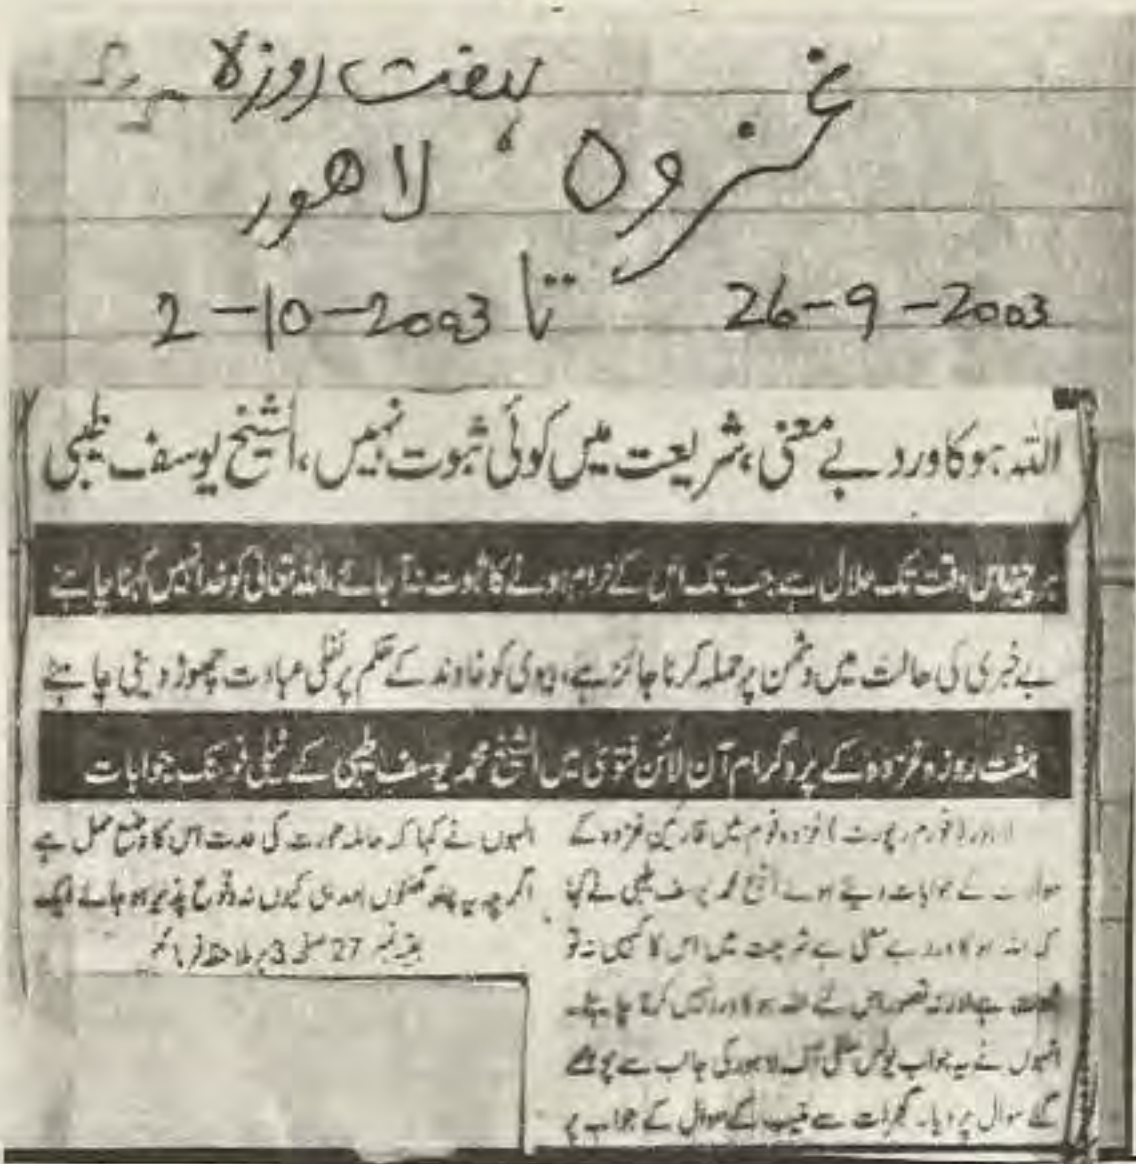 ہفت روزہ
غزوہ، لاہور
26-9-2003 تا 2-10-2003
اللہ ہو کا ورد بے معنی، شریعت میں کوئی ثبوت نہیں، الشیخ یوسف طیبی
ہر چیز اس وقت تک حلال ہے جب تک اس کے حرام ہونے کا ثبوت نہ آ جائے، اللہ تعالیٰ کو خدا نہیں کہنا چاہئے
بے خبری کی حالت میں دشمن پر حملہ کرنا جائز ہے، بیوی کو خاوند کے حکم پر نفلی عبادت چھوڑ دینی چاہئے
ہفت روزہ غزوہ کے پروگرام آن لائن فتویٰ میں الشیخ محمد یوسف طیبی کے ٹیلی فونک جوابات
(فورم رپورٹ) غزوہ فورم میں قارئین غزوہ کے
کے جوابات دیتے ہوئے الشیخ محمد یوسف طیبی نے کہا
کہ اللہ ہو کا ورد بے معنی ہے شریعت میں اس کا کہیں نہ تو
ہے اور نہ تصور اس لئے اللہ ہو کا ورد نہیں کرنا چاہئے۔
انہوں نے یہ جواب یونس آف لاہور کی جانب سے پوچھے
گئے سوال پر دیا۔ گجرات سے کے سوال کے جواب پر
انہوں نے کہا کہ حاملہ عورت کی عدت اس کا وضع حمل ہے
اگرچہ یہ چند گھنٹوں بعد ہی کیوں نہ وقوع پذیر ہو جائے ایک
بقیہ نمبر 27 صفحہ 3 پر ملاحظہ فرمائیں